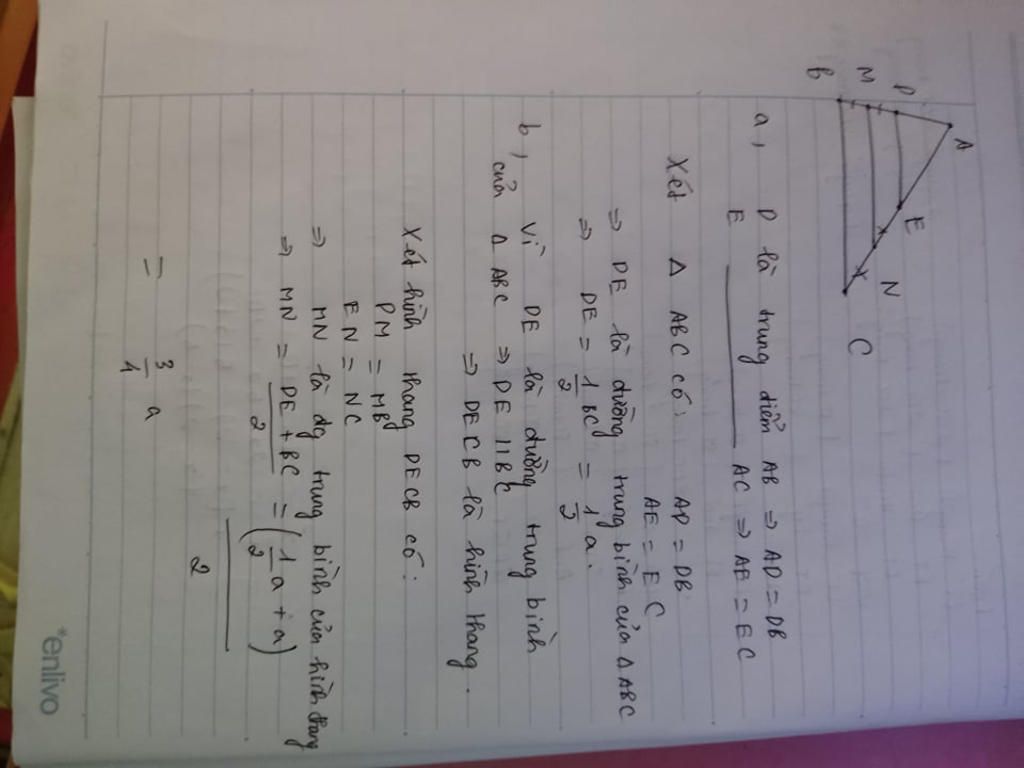 A
D
E
M
N
B
C
a, D là trung điểm AB ⇒ AD = DB
E ——— AC ⇒ AE = EC
Xét Δ ABC có: AD = DB
AE = EC
⇒ DE là đường trung bình của Δ ABC
⇒ DE = 1/2 BC = 1/2 a.
b, Vì DE là đường trung bình
của Δ ABC ⇒ DE // BC
⇒ DECB là hình thang.
Xét hình thang DECB có:
DM = MB
EN = NC
⇒ MN là đg trung bình của hình thang
⇒ MN = (DE + BC)/2 = (1/2 a + a)/2
= 3/4 a
*enlivo